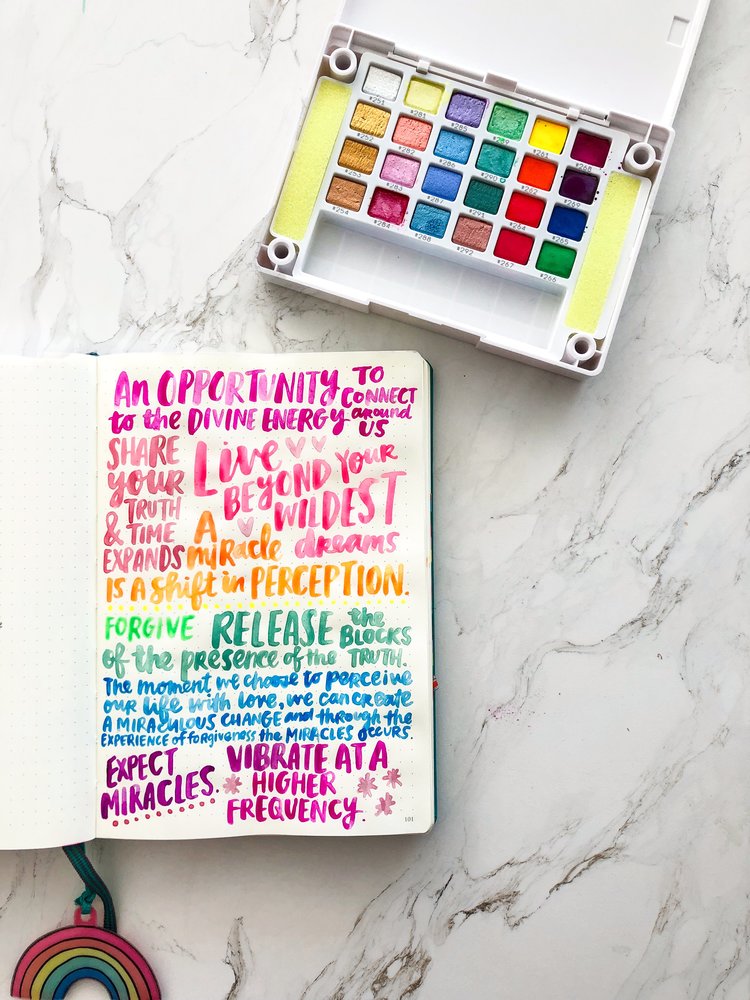 #251 #281 #285 #289 #261 #268
#252 #282 #286 #290 #262 #269
#253 #283 #287 #291 #264 #265
#254 #284 #288 #292 #267 #266
An OPPORTUNITY TO CONNECT
to the DIVINE ENERGY around US
SHARE
your
TRUTH
& TIME
EXPANDS
Live
BEYOND YOUR
WILDEST
dreams
A
miRacle
IS A shift in PERCEPTION.
FORGIVE
RELEASE the BLOCKS
of the presence of the TRUTH.
The moment we choose to perceive
our life with love, we can create
A MIRACULOUS CHANGE and through the
EXPERIENCE of forgiveness the MIRACLES OCCURS.
EXPECT
MIRACLES.
VIBRATE AT A
HIGHER
FREQUENCY.
101